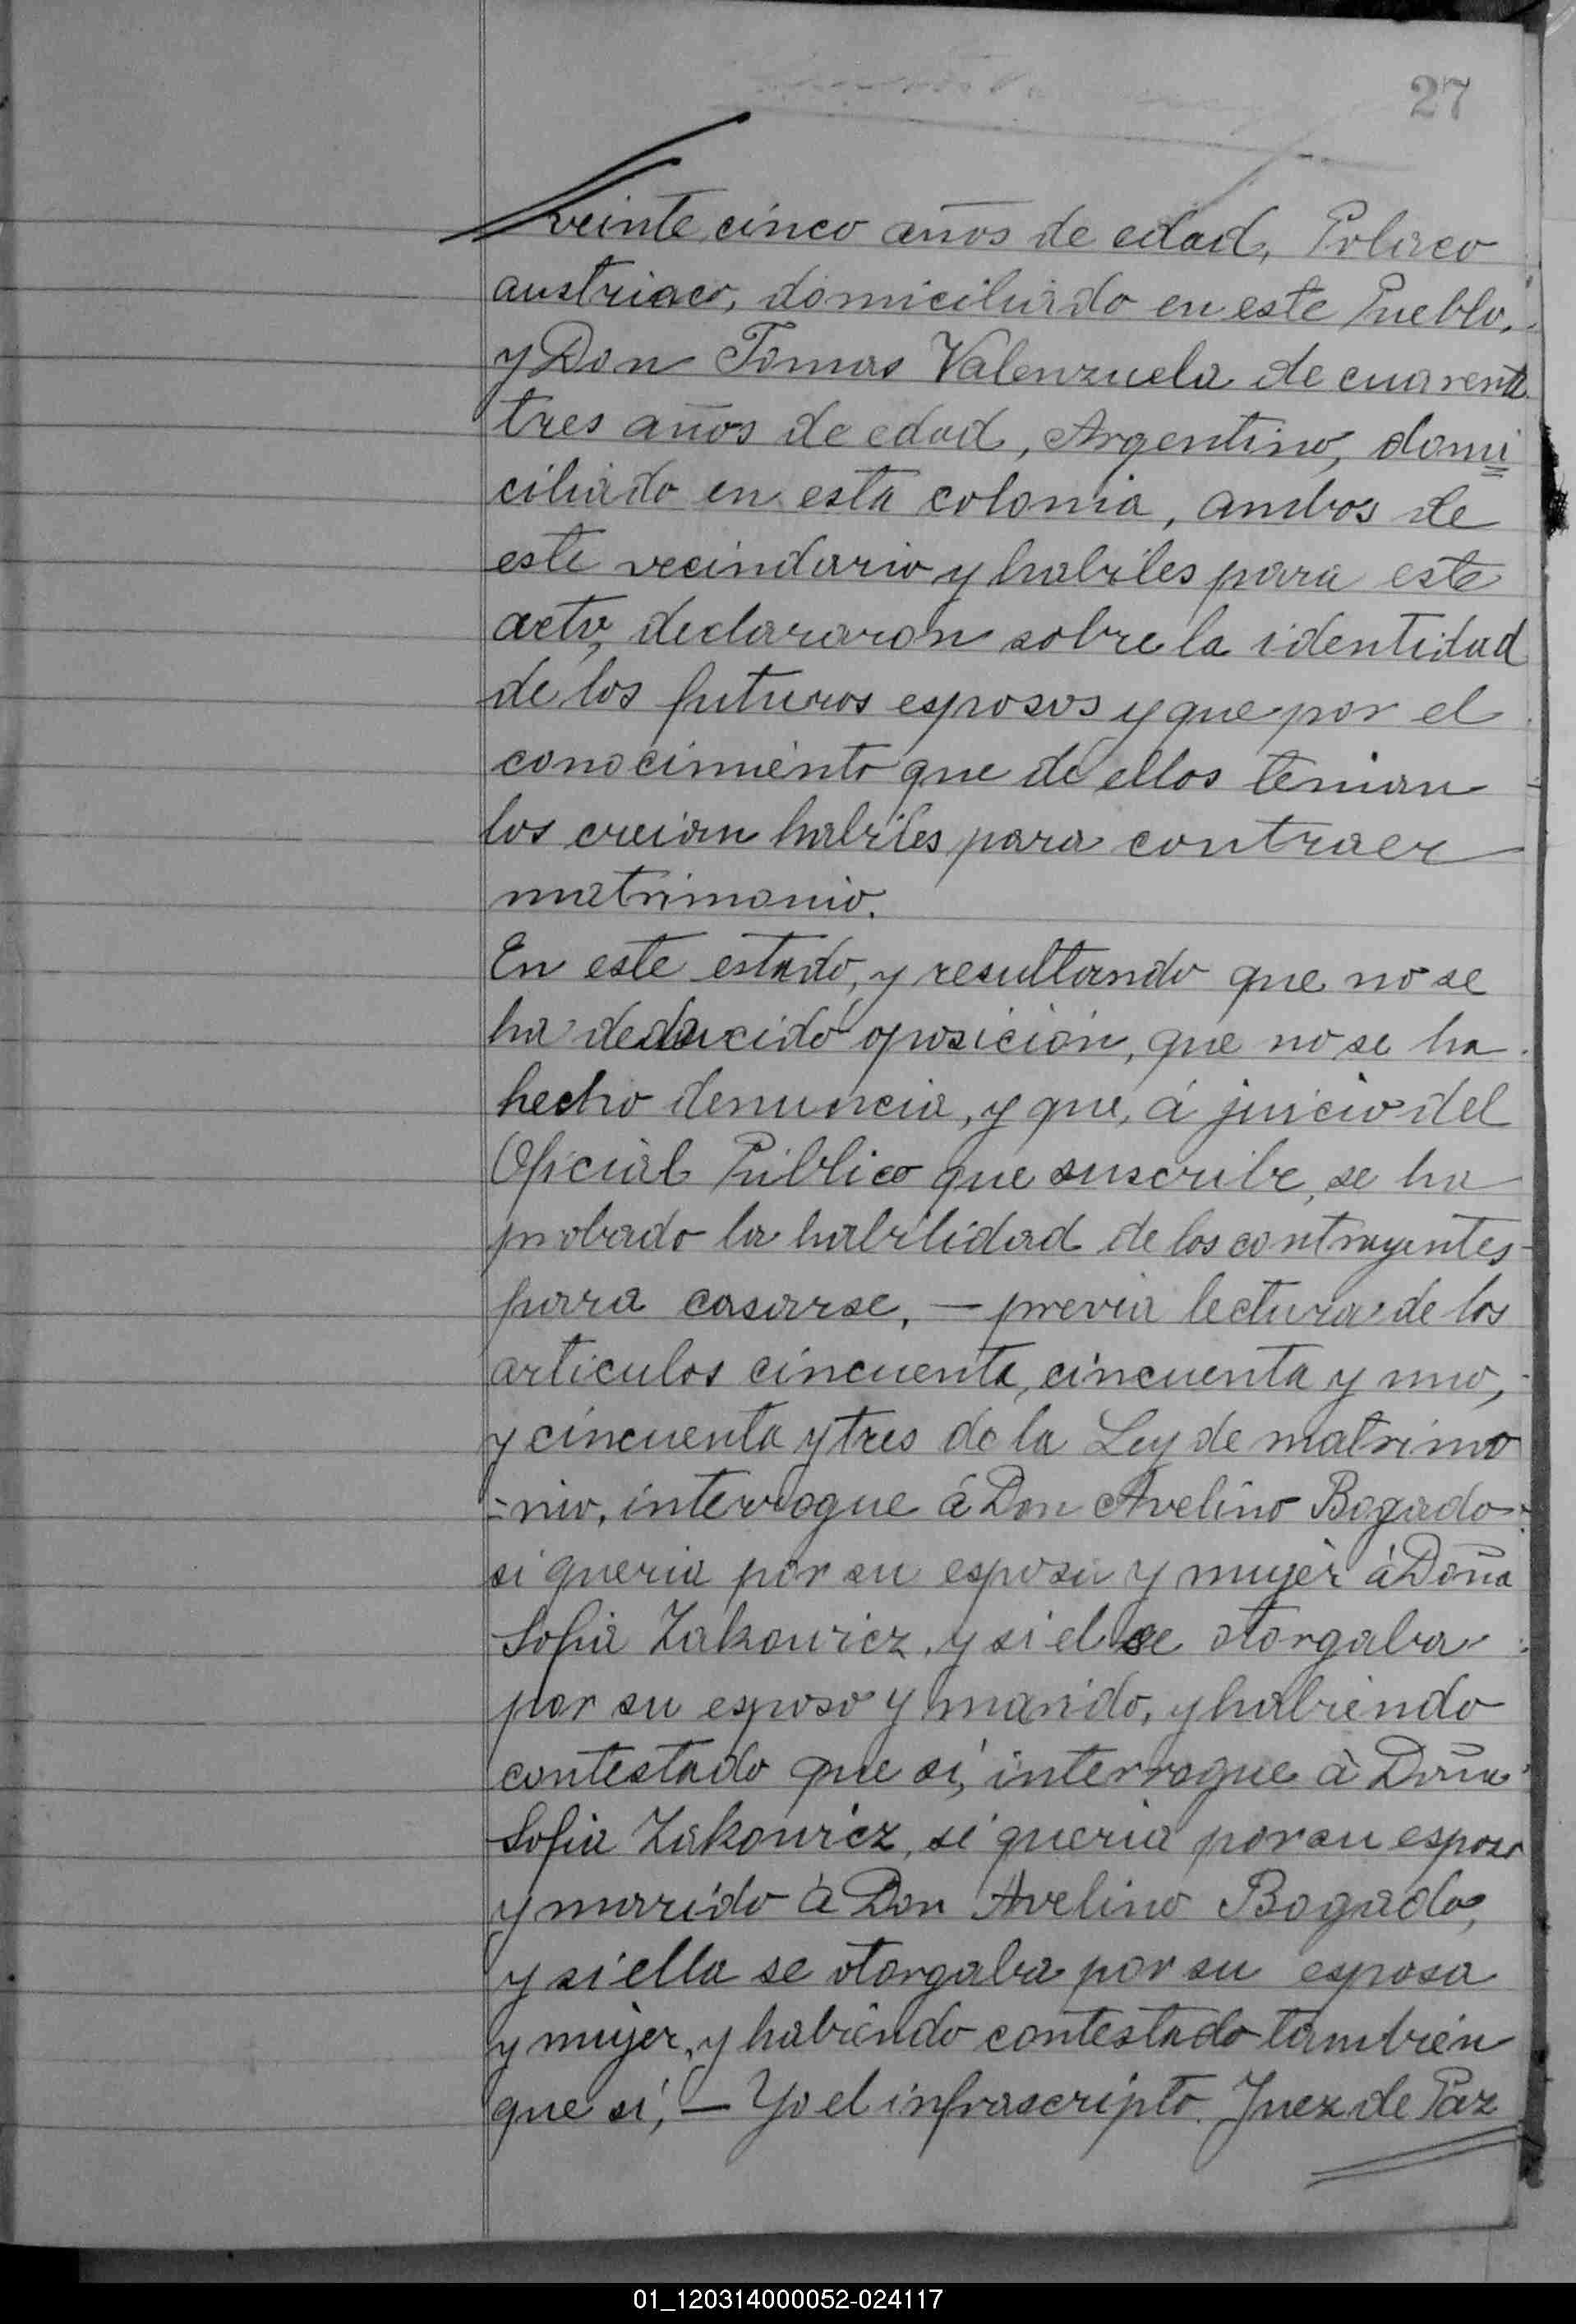 27
veinte cinco años de edad, Polaco
austriaco, domiciliado en este Pueblo,
y Don Tomas Valenzuela de cuarenta
tres años de edad, Argentino, domi
ciliado en esta colonia, ambos de
este vecindario y habiles para este
acto, declararon sobre la identidad
de los futuros esposos y que por el
conocimiento que de ellos tenian
los creian habiles para contraer
matrimonio.
En este estado, y resultando que no se
ha deducido oposición, que no se ha
hecho denuncia, y que, á juicio del
Oficial Público que suscribe, se ha
probado la habilidad de los contrayentes
para casarse, — previa lectura de los
articulos cincuenta, cincuenta y uno,
y cincuenta y tres de la Ley de matrimo
=nio, interrogue á Don Avelino Bogado
si queria por su esposa y mujer á Doña
Sofia Zakowicz, y si el se otorgaba
por su esposo y marido, y habiendo
contestado que si, interrogue á Doña
Sofia Zakowicz, si queria por su esposo
y marido á Don Avelino Bogado,
y si ella se otorgaba por su esposa
y mujer, y habiendo contestado también
que si, — Yo el infrascripto Juez de Paz
01_120314000052-024117